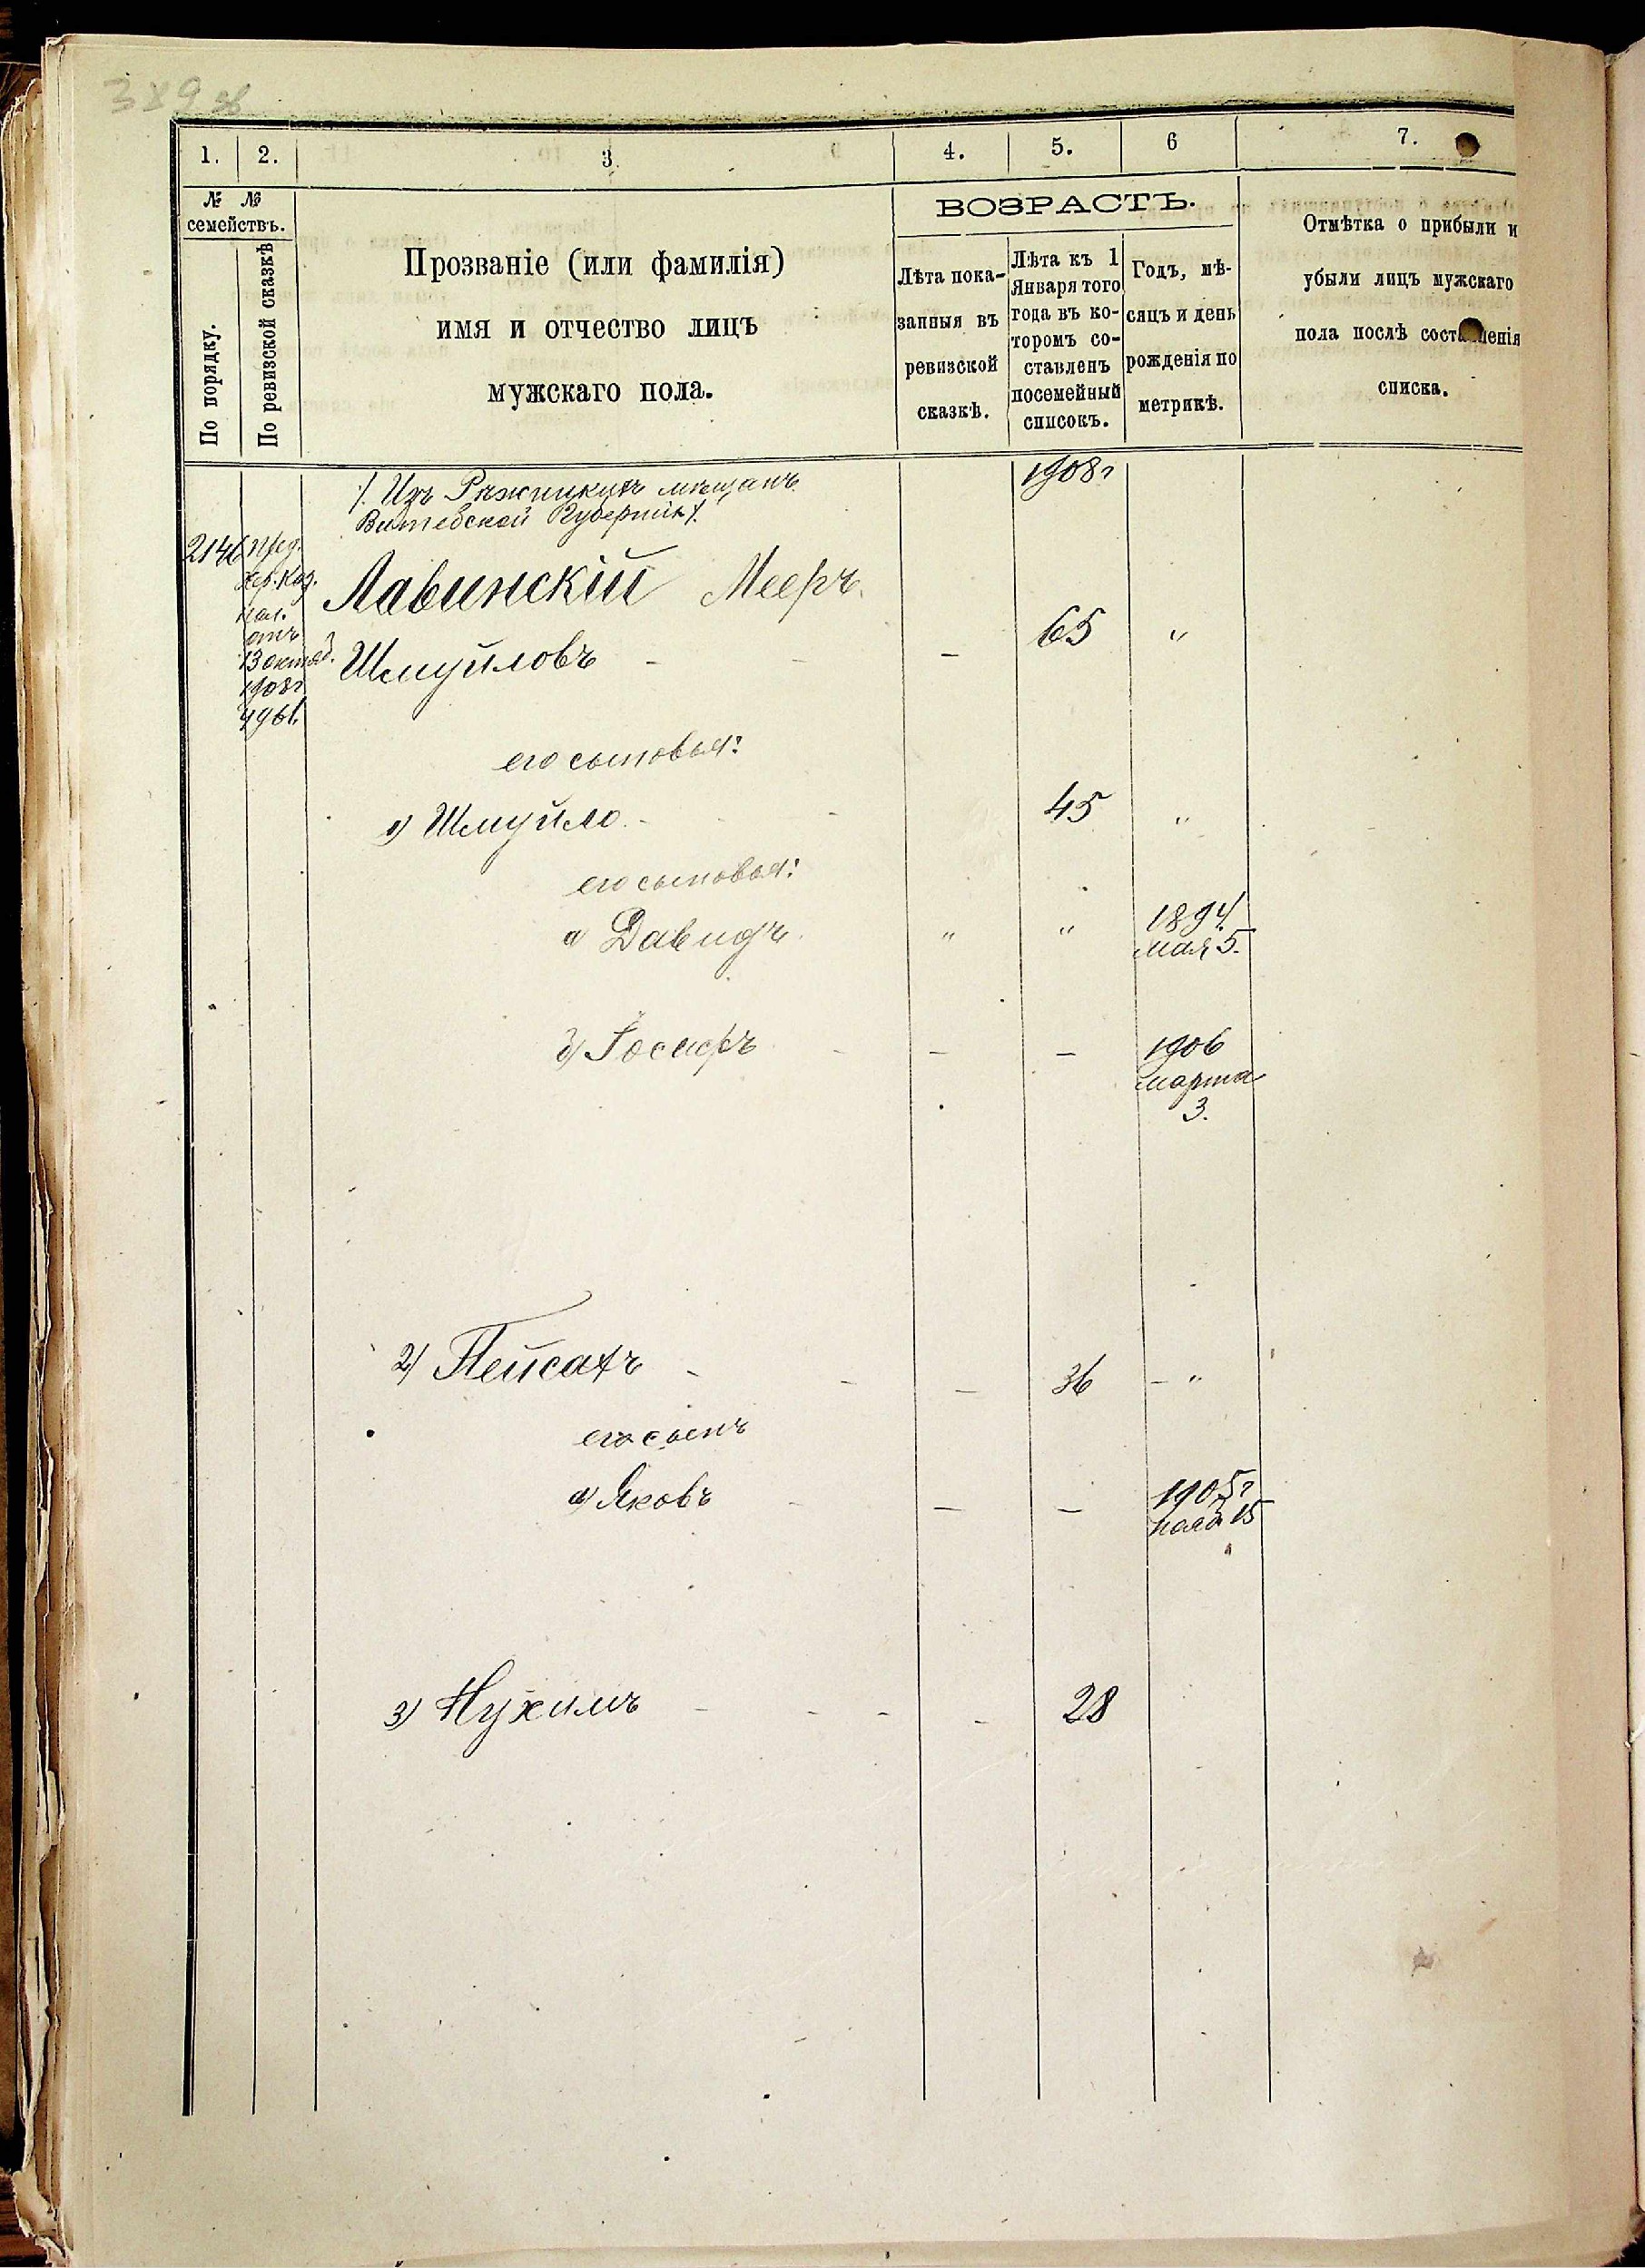 389 об
1. 2. 3. 4. 5. 6 7.
№ №
семействъ.
По порядку.
По ревизской сказкѣ
Прозваніе (или фамилія)
имя и отчество лицъ
мужскаго пола.
ВОЗРАСТЪ.
Лѣта пока-
занныя въ
ревизской
сказкѣ.
Лѣта къ 1
Января того
года въ ко-
торомъ со-
ставленъ
посемейный
списокъ.
Годъ, мѣ-
сяцъ и день
рожденія по
метрикѣ.
Отмѣтка о прибыли и
убыли лицъ мужскаго
пола послѣ составленія
списка.
1908г
/. Изъ Рѣжицкихъ мѣщанъ
Витебской Губерніи /.
2146
пред.
хер. каз.
пал.
отъ
13 октяб.
1908г
4961.
Лавинскій Мееръ
Шмуйловъ - - - 65 "
его сыновья:
1) Шмуйло - - 45 "
его сыновья:
а) Давидъ " " 1894
мая 5.
б) Іосифъ - - - 1906
марта
3.
2) Пейсахъ - - - 36 - "
его сынъ
а) Яковъ - - - 1905г
нояб 15
3) Нухимъ - - - - 28